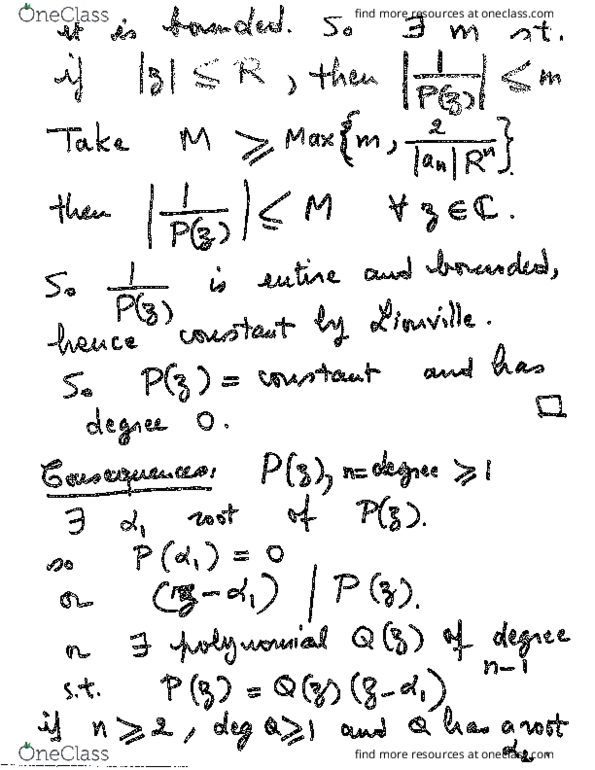 OneClass find more resources at oneclass.com
it is bounded. So ∃ m st.
if |z| ≤ R, then |1/P(z)| ≤ m
Take M ≥ Max{m, 2/(|aₙ|Rⁿ)}.
then |1/P(z)| ≤ M ∀ z ∈ ℂ.
So 1/P(z) is entire and bounded,
hence constant by Liouville.
So P(z) = constant and has
degree 0. □
Consequences: P(z), n=degree ≥ 1
∃ α₁ root of P(z).
so P(α₁) = 0
or (z-α₁) | P(z).
or ∃ polynomial Q(z) of degree
n-1
s.t. P(z) = Q(z)(z-α₁)
if n ≥ 2, deg Q ≥ 1 and Q has a root
α₂.
OneClass find more resources at oneclass.com